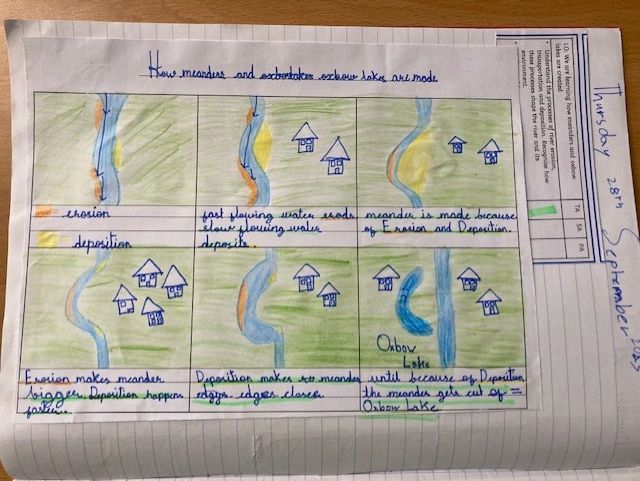 How meanders and oxbow lakes are made
= erosion
= deposition
fast flowing water erods
slow flowing water
deposits.
meander is made because
of Erosion and Deposition.
Erosion makes meander
bigger. Deposition happens
faster.
Deposition makes meander
edges closer.
Oxbow
Lake
until because of Deposition
the meander gets cut of =
Oxbow Lake
LO: We are learning how meanders and oxbow
lakes are created
• Understand the processes of river erosion,
transportation and deposition. Recognise how
these processes shape the river and its
environment.
TA SA PA
Thursday 28th September 2023